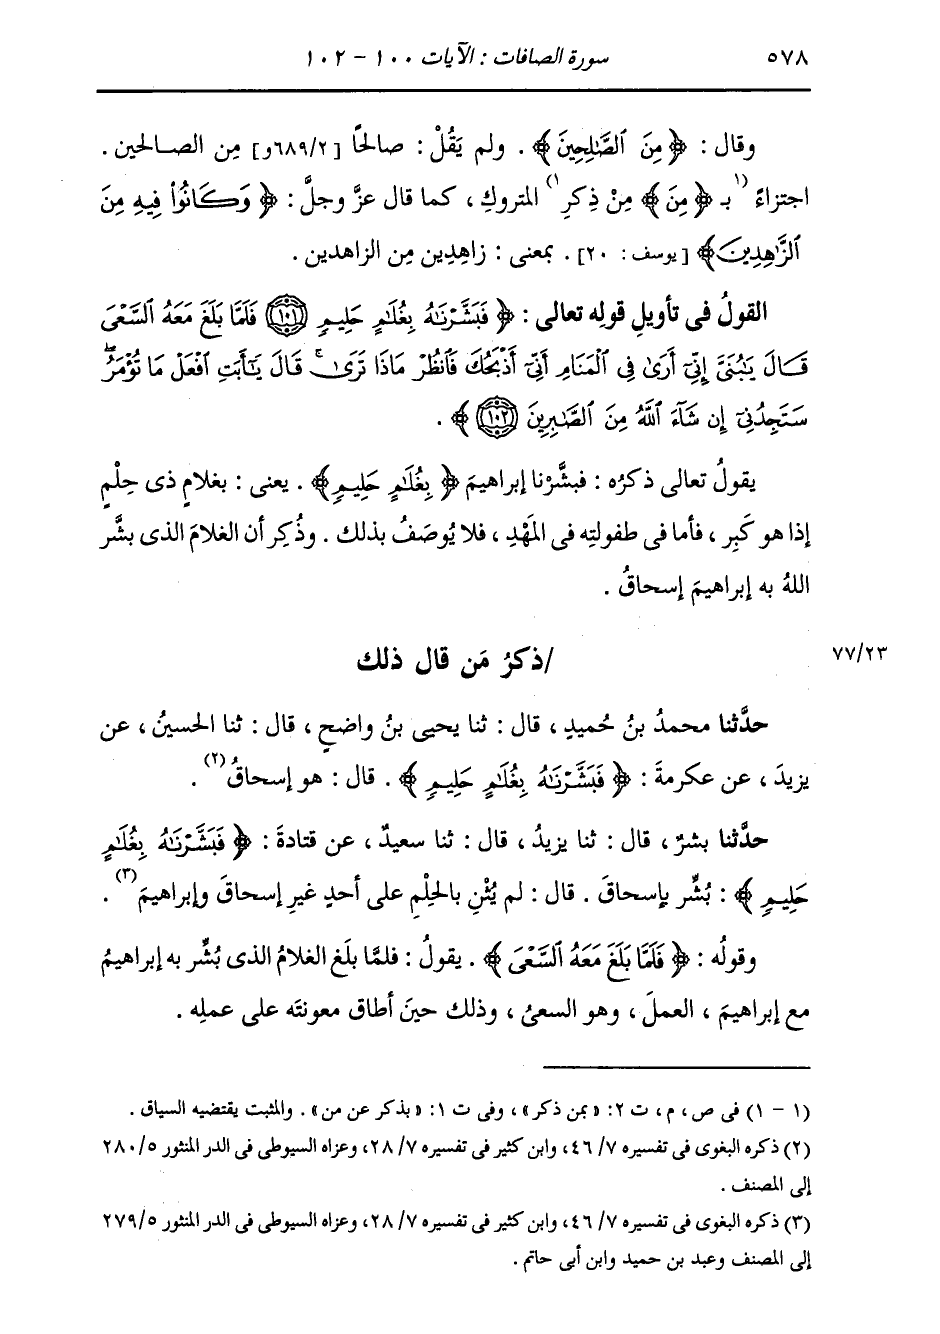 ٥٧٨ سورة الصافات : الآيات ١٠٠ - ١٠٢
وقال : ﴿ مِنَ ٱلصَّٰلِحِينَ ﴾ . ولم يَقُلْ : صالحًا [٦٨٩/٢و] مِن الصالحين .
اجتزاءً (١ بـ ﴿ مِنَ ﴾ مِنْ ذِكرِ ١) المتروكِ ، كما قال عزَّ وجلَّ : ﴿ وَكَانُوا۟ فِيهِ مِنَ
ٱلزَّٰهِدِينَ ﴾ [يوسف : ٢٠] . بمعنى : زاهِدِين مِن الزاهدين .
القولُ فى تأويلِ قولِه تعالى : ﴿ فَبَشَّرْنَٰهُ بِغُلَٰمٍ حَلِيمٍ ١٠١ فَلَمَّا بَلَغَ مَعَهُ ٱلسَّعْىَ
قَالَ يَٰبُنَىَّ إِنِّىٓ أَرَىٰ فِى ٱلْمَنَامِ أَنِّىٓ أَذْبَحُكَ فَٱنظُرْ مَاذَا تَرَىٰ ۚ قَالَ يَٰٓأَبَتِ ٱفْعَلْ مَا تُؤْمَرُ ۖ
سَتَجِدُنِىٓ إِن شَآءَ ٱللَّهُ مِنَ ٱلصَّٰبِرِينَ ١٠٢ ﴾ .
يقولُ تعالى ذكرُه : فبشَّرْنا إبراهيمَ ﴿ بِغُلَٰمٍ حَلِيمٍ ﴾ . يعنى : بغلامٍ ذى حِلْمٍ
إذا هو كَبِر ، فأما فى طفولتِه فى المَهْدِ ، فلا يُوصَفُ بذلك . وذُكِر أن الغلامَ الذى بشَّر
اللهُ به إبراهيمَ إسحاقُ .
/ذكرُ مَن قال ذلك ٧٧/٢٣
حدَّثنا محمدُ بنُ حُميدٍ ، قال : ثنا يحيى بنُ واضحٍ ، قال : ثنا الحسينُ ، عن
يزيدَ ، عن عكرمةَ : ﴿ فَبَشَّرْنَٰهُ بِغُلَٰمٍ حَلِيمٍ ﴾ . قال : هو إسحاقُ (٢) .
حدَّثنا بشرٌ ، قال : ثنا يزيدُ ، قال : ثنا سعيدٌ ، عن قتادةَ : ﴿ فَبَشَّرْنَٰهُ بِغُلَٰمٍ
حَلِيمٍ ﴾ : بُشِّر بإسحاقَ . قال : لم يُثْنِ بالحِلْمِ على أحدٍ غيرِ إسحاقَ وإبراهيمَ (٣) .
وقولُه : ﴿ فَلَمَّا بَلَغَ مَعَهُ ٱلسَّعْىَ ﴾ . يقولُ : فلمَّا بلَغ الغلامُ الذى بُشِّر به إبراهيمُ
مع إبراهيمَ ، العملَ ، وهو السعىُ ، وذلك حينَ أطاق معونتَه على عملِه .
(١ - ١) فى ص ، م ، ت ٢: «بمن ذكر» ، وفى ت ١: «بذكر عن من» . والمثبت يقتضيه السياق .
(٢) ذكره البغوى فى تفسيره ٤٦/٧ ، وابن كثير فى تفسيره ٢٨/٧ ، وعزاه السيوطى فى الدر المنثور ٢٨٠/٥
إلى المصنف .
(٣) ذكره البغوى فى تفسيره ٤٦/٧ ، وابن كثير فى تفسيره ٢٨/٧ ، وعزاه السيوطى فى الدر المنثور ٢٧٩/٥
إلى المصنف وعبد بن حميد وابن أبى حاتم .